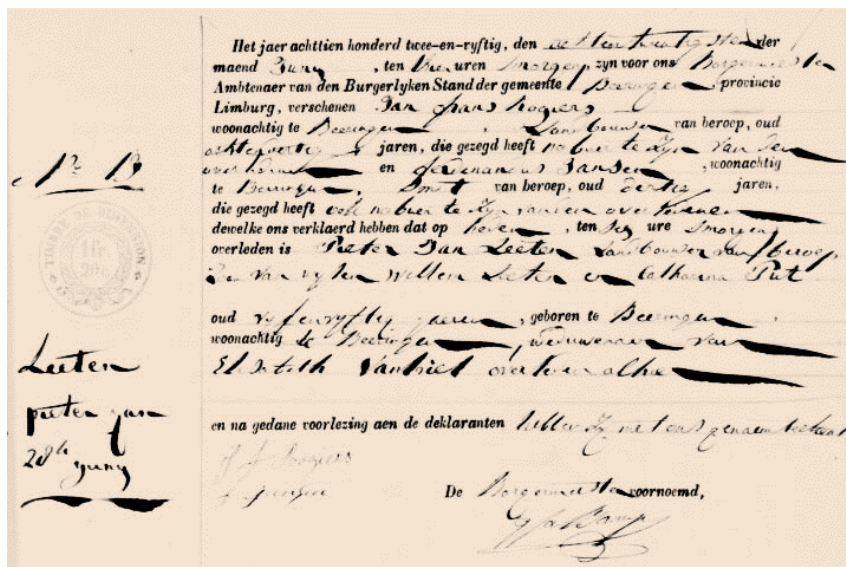 Het jaer achttien honderd twee-en-vyftig, den achtentwintigsten der
maend Juny, ten uren smorgens, zyn voor ons Borgemeester
Ambtenaer van den Burgerlyken Stand der gemeente Beeringen, provincie
Limburg, verschenen Jan frans Rogiers
woonachtig te Beeringen, Landbouwer van beroep, oud
achtenvertig jaren, die gezegd heeft nabuer te Zyn van den
N° 19
overledenen en ferdenandus Jansen, woonachtig
te Beeringen, Smet van beroep, oud dertig jaren,
die gezegd heeft ook nabuer te Zyn van den overledenen
TIMBRE DE DIMENSION
1 fr.
20 c.
dewelke ons verklaerd hebben dat op heden, ten ure smorgens
overleden is Pieter Jan Leeten Landbouwer van beroep
Zoon van wylen Willem Leeten en Catharina Put
oud vyfenvyftig jaeren, geboren te Beeringen
woonachtig te Beeringen, weduwenaer van
Leeten
Elisabeth Vanbriel overleden alhier
pieter jan
en na gedane voorlezing aen de deklaranten hebben Zy met ons geteekent
28ste juny
J f Rogiers
f jansen
De Borgemeester voornoemd,